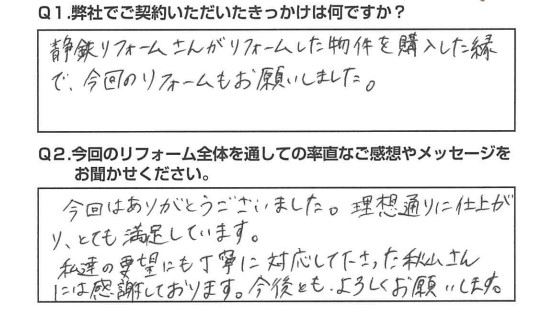 Q1.弊社でご契約いただいたきっかけは何ですか？
静鉄リフォームさんがリフォームした物件を購入した縁
で、今回のリフォームもお願いしました。
Q2.今回のリフォーム全体を通しての率直なご感想やメッセージを
お聞かせください。
今回はありがとうございました。理想通りに仕上が
り、とても満足しています。
私達の要望にも丁寧に対応して下さった秋山さん
には感謝しております。今後とも、よろしくお願いします。